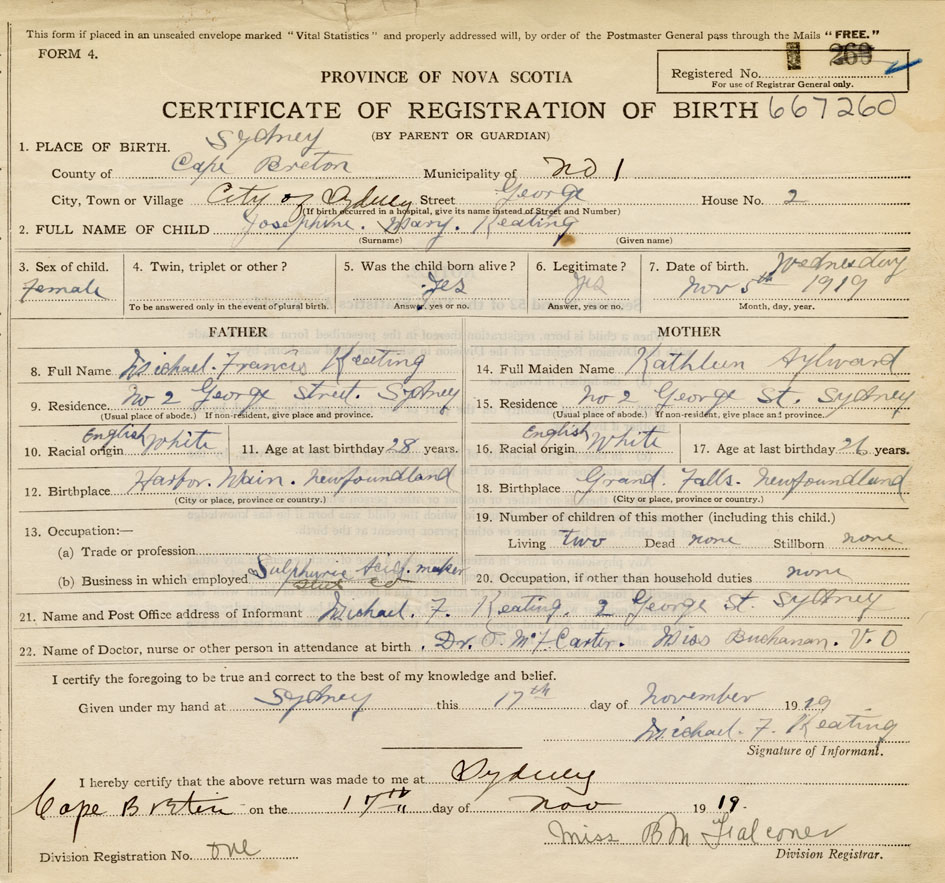 This form if placed in an unsealed envelope marked "Vital Statistics" and properly addressed will, by order of the Postmaster General pass through the Mails "FREE."
FORM 4.
Registered No. 260
For use of Registrar General only.
PROVINCE OF NOVA SCOTIA
CERTIFICATE OF REGISTRATION OF BIRTH 667260
(BY PARENT OR GUARDIAN)
1. PLACE OF BIRTH. Sydney
County of Cape Breton Municipality of NO 1
City, Town or Village City of Sydney Street George House No. 2
(If birth occurred in a hospital, give its name instead of Street and Number)
2. FULL NAME OF CHILD Josephine. Mary. Keating
(Surname) (Given name)
3. Sex of child. 4. Twin, triplet or other? 5. Was the child born alive? 6. Legitimate? 7. Date of birth. Wednesday
Female Yes Yes Nov 5th 1919
To be answered only in the event of plural birth. Answer, yes or no. Answer, yes or no. Month, day, year.
FATHER MOTHER
8. Full Name Michael. Francis Keating 14. Full Maiden Name Kathleen Aylward
9. Residence. No 2 George Street. Sydney 15. Residence No 2 George St. Sydney
(Usual place of abode.) If non-resident, give place and province. (Usual place of abode.) If non-resident, give place and province.
10. Racial origin English White 11. Age at last birthday 28 years. 16. Racial origin English White 17. Age at last birthday 26 years.
12. Birthplace Harbor. Main. Newfoundland 18. Birthplace Grand. Falls. Newfoundland
(City or place, province or country.) (City or place, province or country.)
13. Occupation:— 19. Number of children of this mother (including this child.)
(a) Trade or profession Living two Dead none Stillborn none
(b) Business in which employed Sulphuric Acid. maker 20. Occupation, if other than household duties none
21. Name and Post Office address of Informant Michael. F. Keating. 2 George St. Sydney
22. Name of Doctor, nurse or other person in attendance at birth. Dr. Carter. Miss Buchanan. V. O
I certify the foregoing to be true and correct to the best of my knowledge and belief.
Given under my hand at Sydney this 17th day of November 1919
Michael. F. Keating
Signature of Informant.
I hereby certify that the above return was made to me at Sydney
Cape Breton on the 17th day of Nov 1919.
Miss B M Falconer
Division Registration No. one Division Registrar.